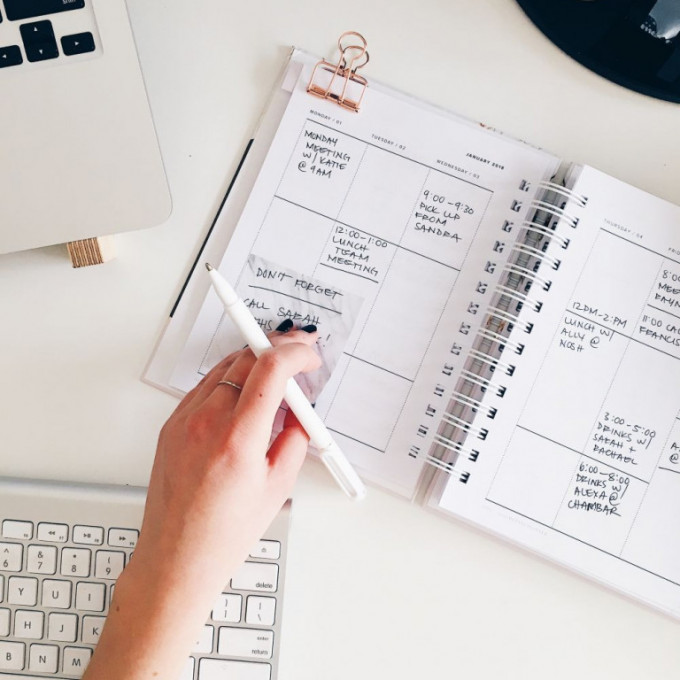 MONDAY / 01
MONDAY
MEETING
W/ KATIE
@ 9AM
TUESDAY / 02
12:00-1:00
LUNCH
TEAM
MEETING
JANUARY 2018
WEDNESDAY / 03
9:00-9:30
PICK UP
FROM
SANDRA
DON'T FORGET
CALL SARAH
!
THURSDAY / 04
12PM-2PM
LUNCH W/
ALLY @
NOSH
3:00-5:00
DRINKS W/
SARAH +
RACHAEL
6:00-8:00
DRINKS W/
ALEXA @
CHAMBAR
8:00
11:00 CA
FRANCIS
^
6
&
7
*
8
(
9
Y
U
I
H
J
K
B
N
M
delete
return